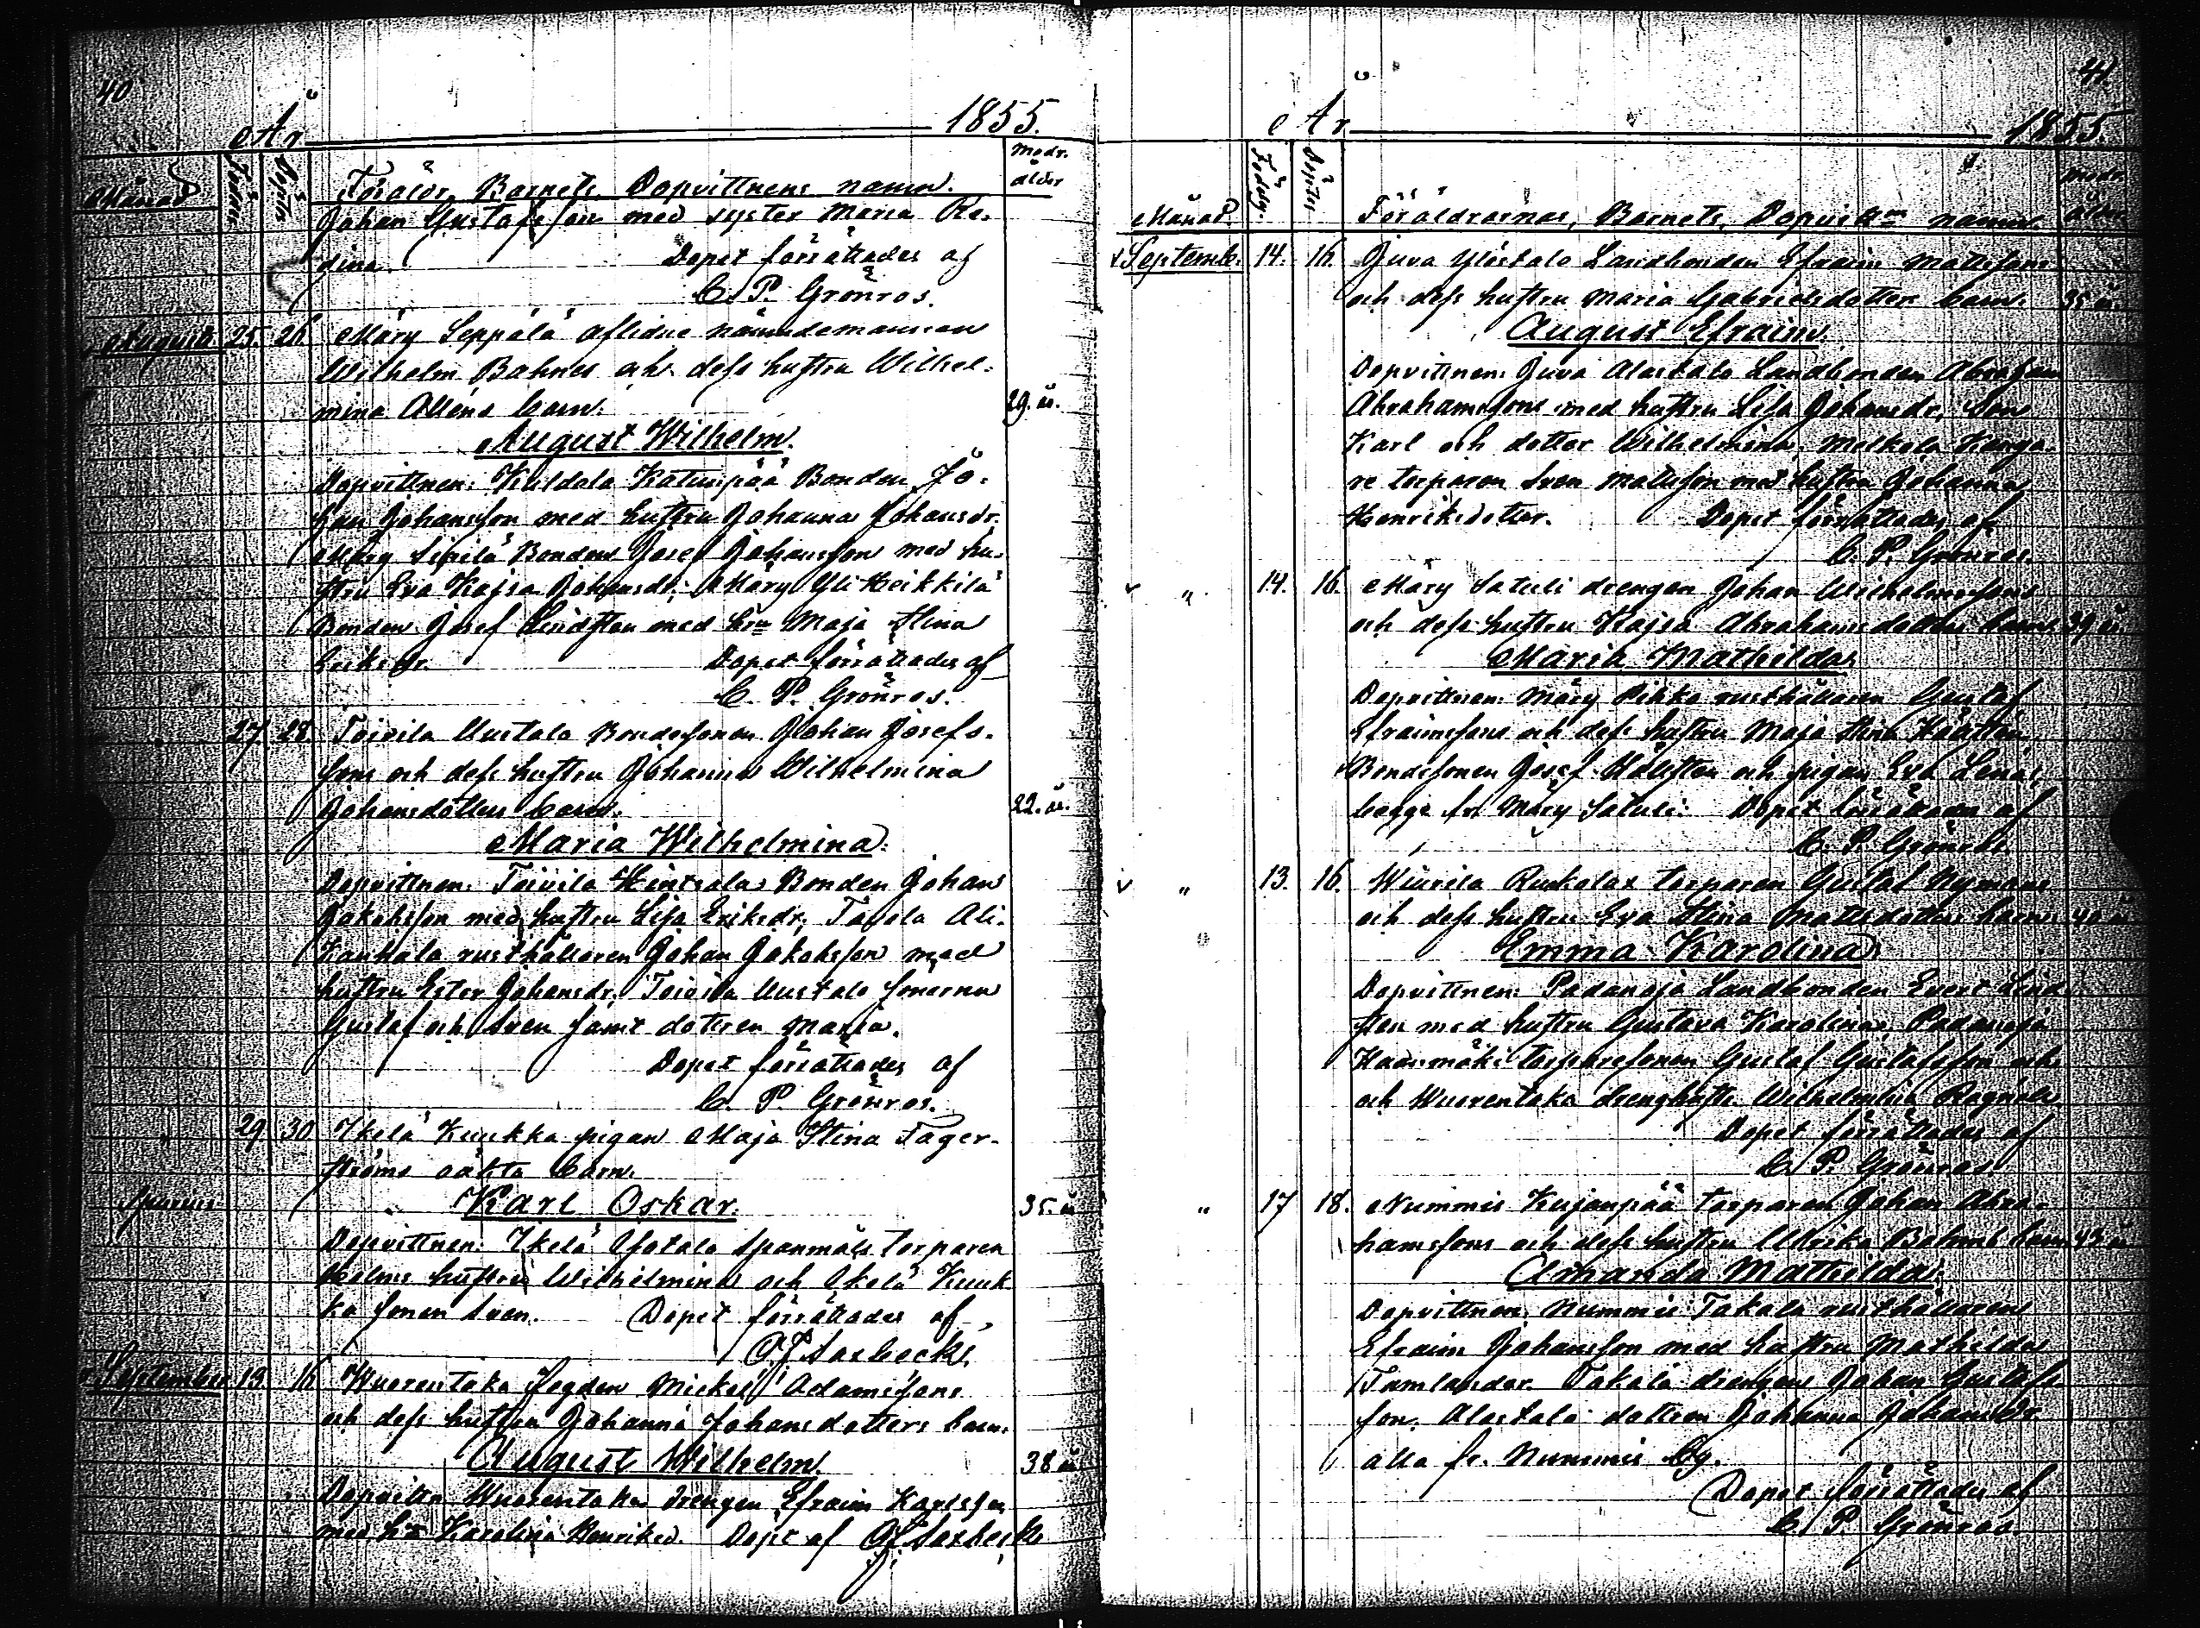 40
År 1855.
Månad Födde Döpte Föräldr. Barnets, Dopvittnens namn. Modr. ålder
Johan Gustafsson med syster Maria Re-
gina. Dopet förrättades af
C. P. Grönros.
Augusti 25. 26 Märy Seppälä aflidne nämndemannen
Wilhelm Bahnes och dess hustru Wilhel-
mina Alléns barn. 29. å.
August Wilhelm.
Dopvittnen: Kuldala Katinpää Bonden Jo-
han Johansson med hustru Johanna Johansdr.
Märy Bonden Josef Johansson med hu-
stru Eva Kajsa Johansdr; Märy Yli Heikkilä
Bonden Josef Lindsten med hru Maja Stina
Eriksdr. Dopet förrättades af
C. P. Grönros.
27. 28. Toivila Uustalo Bondesonen Johan Josefs-
sons och dess hustru Johanna Wilhelmina
Johansdotters barn. 22. år.
Maria Wilhelmina.
Dopvittnen: Toivila Hintsala Bonden Johan
Jakobsson med hustru Lisa Eriksdr, Tavola Ali-
Kauhala rusthållaren Johan Jakobsson med
hustru Ester Johansdr, Toivila Uustalo sönerna
Gustaf och Sven samt dottren Maria.
Dopet förrättades af
C. P. Grönros.
" 29 30 Ikelä Kuukka pigan Maja Stina Fager-
ströms oäkta barn.
Karl Oskar. 35. å
Dopvittnen: Ikelä Ojatalo Spanmäki torparen
Holms hustru Wilhelmina och Ikelä Kuuk-
ka sonen Sven. Dopet förrättades af
September 13. 16 Wuorentaka fogden Mickel Adamssons
och dess hustru Johanna Johansdotters barn.
August Wilhelm. 38 å
Dopvittn Wuorentaka drengen Efraim Karlsson
med hru Karolina Henriksd. Dopet af
41
År 1855.
Månad Födde Döpte Föräldrarnas, Barnets, Dopvittn namn. Modr. ålder
Septemb. 14. 16. Juva Ylöstalo Landbonden Efraim Mattssons
och dess hustru Maria Gabrielsdotters barn. 35 å.
August Efraim.
Dopvittnen: Juva Alastalo Landbonden Abraham
Abrahamsson med hustru Lisa Johansdr, son
Karl och dotter Wilhelmina, Melkola Kanga-
re torparen Sven Mattsson med hustru Johanna
Henriksdotter. Dopet förrättades af
C. P. Grönros.
" 14. 16. Märy Satuli drengen Johan Wilhelmssons
och dess hustru Kajsa Abrahamsdotters barn 39 å.
Maria Mathilda.
Dopvittnen: Märy Pikka rusthållaren Gustaf
Efraimsson och dess hustru Maja Stina
Bondesonen Josef och pigan Eva Lena,
begge fr. Märy Satuli. Dopet förrättades af
C. P. Grönros.
" 13. 16. Wiurila Ruukolax torparen Gustaf Nymans
och dess hustru Eva Stina Mattsdotters barn 40 å
Emma Karolina.
Dopvittnen: Padanoja Landbonden Evert Lind-
sten med hustru Gustava Karolina, Padanoja
torparesonen Gustaf Gustafsson och
och Wuorentaka drenghustr. Wilhelmina
Dopet förrättades af
C. P. Grönros
" 17 18. Nummis Kujanpää torparen Johan Abra-
hamssons och dess hustru Ulrika barn 43 å
Amanda Mathilda.
Dopvittnen: Nummis Takala rusthållaren
Efraim Johansson med hustru Mathilda
Tamlander. Takala drengen Johan Gustafs-
son. Alastalo dottren Johanna Johansdr.
alla fr. Nummis by.
Dopet förrättades af
C. P. Grönros